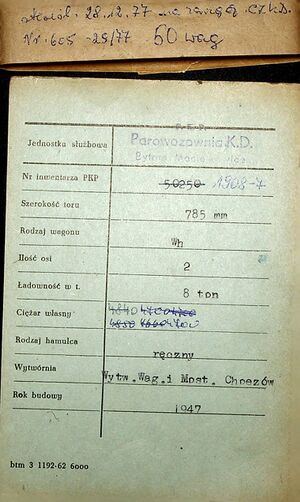 28.12.77 na
Nr. 605-25/77 50 wag
P.K.P.
Jednostka służbowa Parowozownia K.D.
Bytom
Nr inwentarza PKP 50250 1908-7
Szerokość toru 785 mm
Rodzaj wagonu Wh
Ilość osi 2
Ładowność w t. 8 ton
Ciężar własny 4840 4700
4700
Rodzaj hamulca ręczny
Wytwórnia Wytw.Wag.i Most. Chorzów
Rok budowy 1947
btm 3 1192-62 6000